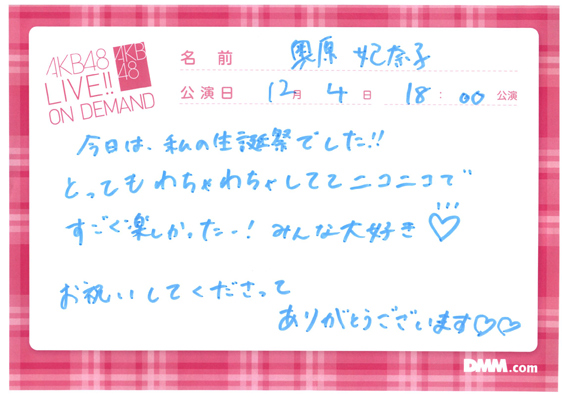 AKB48
LIVE!!
ON DEMAND
AKB
48
名前 奥原 妃奈子
公演日 12月 4日 18:00公演
今日は、私の生誕祭でした!!
とってもわちゃわちゃしててニコニコで
すごく楽しかったー! みんな大好き♡
お祝いしてくださって
ありがとうございます♡♡
DMM.com